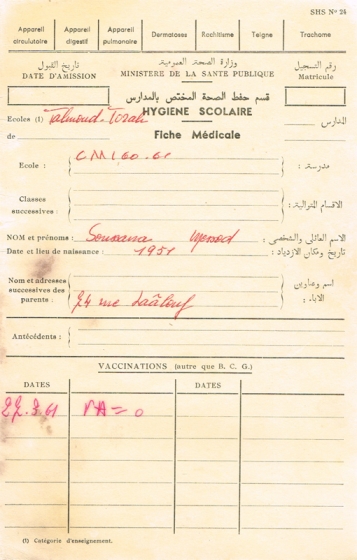 SHS Nº 24
Appareil circulatoire
Appareil digestif
Appareil pulmonaire
Dermatoses
Rachitisme
Teigne
Trachome
تاريخ القبول
وزارة الصحة العمومية
رقم التسجيل
DATE D'AMISSION
MINISTERE DE LA SANTE PUBLIQUE
Matricule
قسم حفظ الصحة المختص بالمدارس
HYGIENE SCOLAIRE
Ecoles (1) Talmud-Torah
المدارس
de
Fiche Médicale
Ecole : CMI 60-61
مدرسة :
Classes successives :
الاقسام المتوالية :
NOM et prénoms : Soussana Messod
الاسم العائلي والشخصي :
Date et lieu de naissance : 1951
تاريخ ومكان الازدياد :
Nom et adresses successives des parents : 24 rue
اسم وعناوين الاباء :
Antécédents :
VACCINATIONS (autre que B. C. G.)
DATES
DATES
22.3.61 = 0
(1) Catégorie d'enseignement.